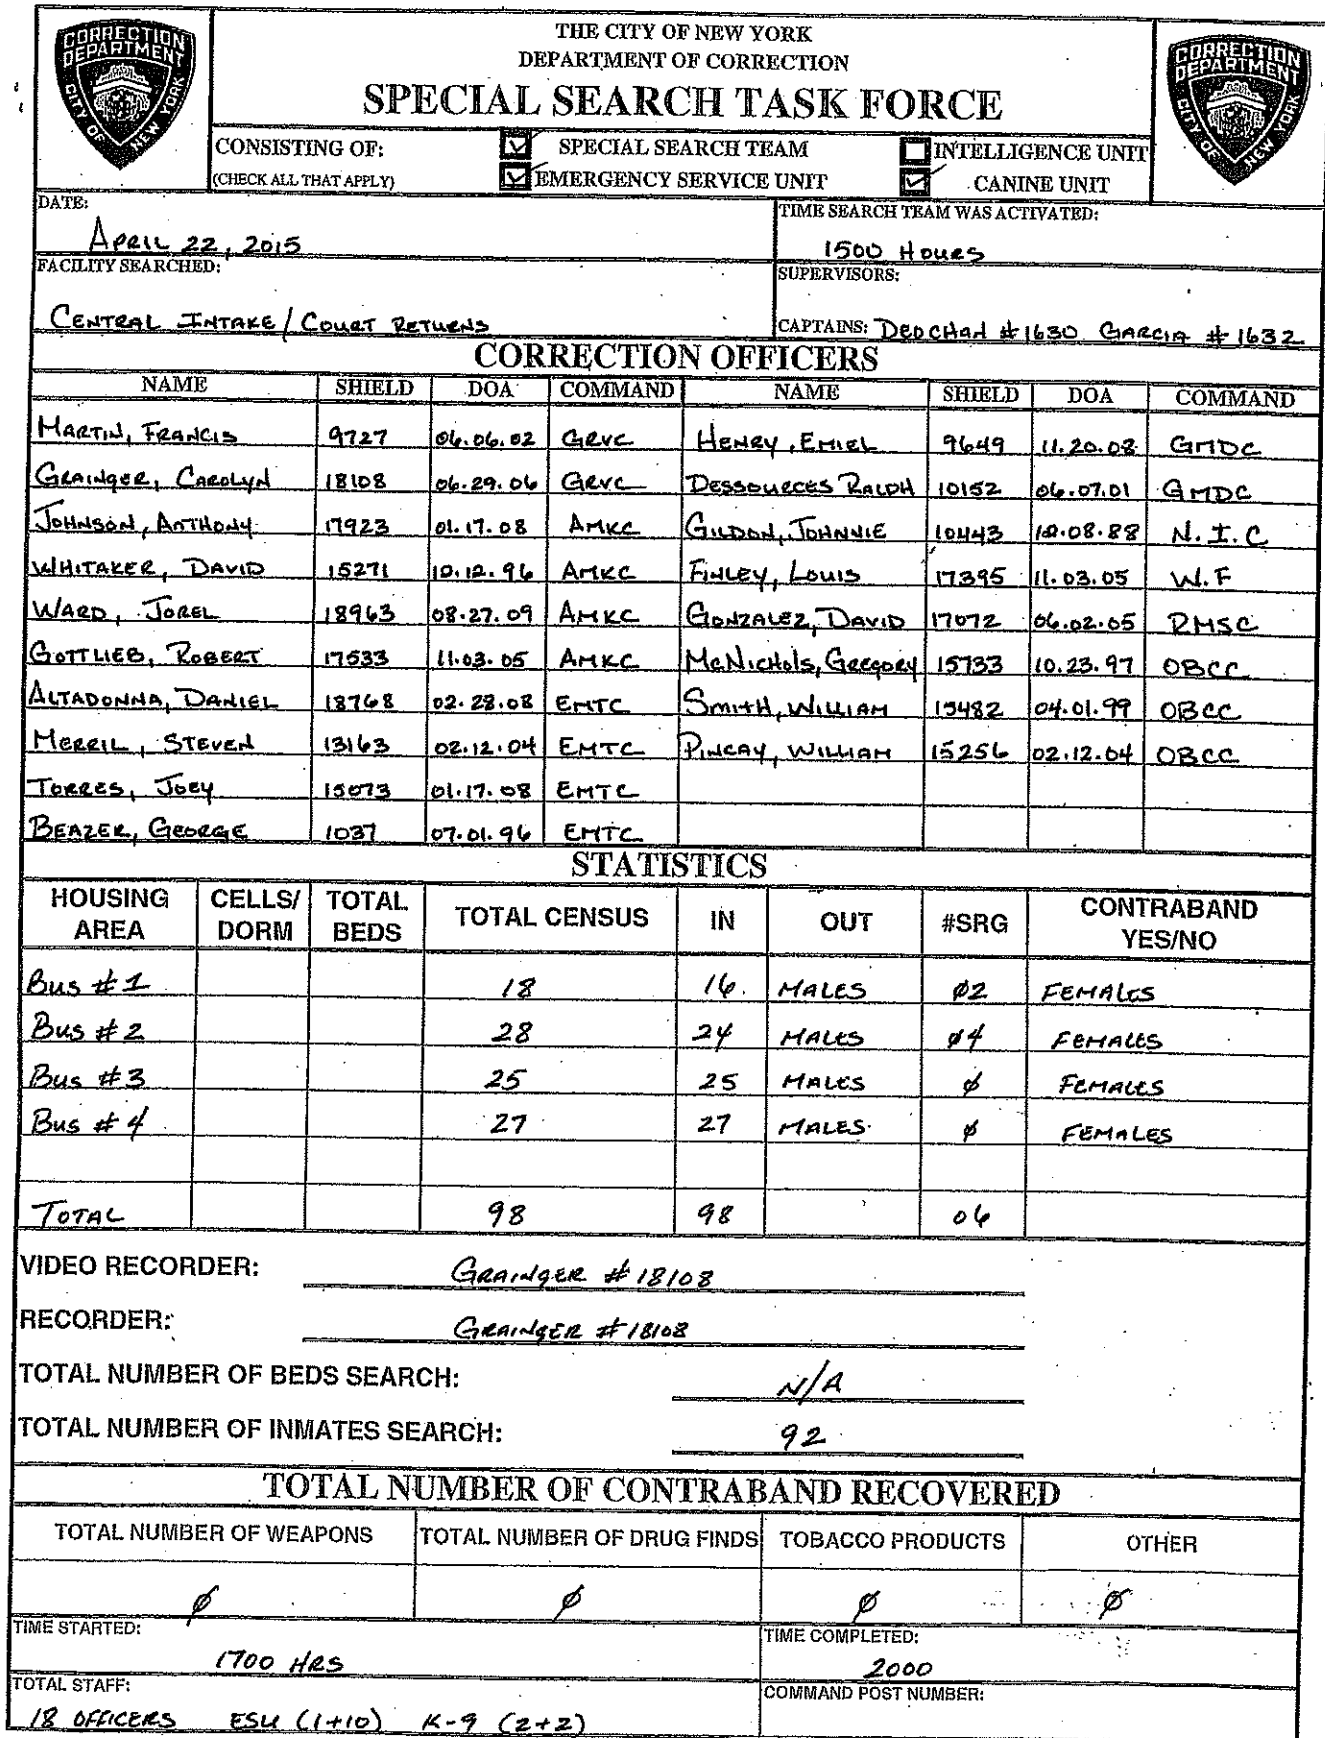 CORRECTION
DEPARTMENT
CITY OF NEW YORK
THE CITY OF NEW YORK
DEPARTMENT OF CORRECTION
SPECIAL SEARCH TASK FORCE
CORRECTION
DEPARTMENT
CITY OF NEW YORK
CONSISTING OF: SPECIAL SEARCH TEAM INTELLIGENCE UNIT
(CHECK ALL THAT APPLY) EMERGENCY SERVICE UNIT CANINE UNIT
DATE: TIME SEARCH TEAM WAS ACTIVATED:
APRIL 22, 2015 1500 HOURS
FACILITY SEARCHED: SUPERVISORS:
CENTRAL INTAKE/COURT RETURNS CAPTAINS: DEOCHAN #1630 GARCIA #1632
CORRECTION OFFICERS
NAME SHIELD DOA COMMAND NAME SHIELD DOA COMMAND
MARTIN, FRANCIS 9727 06.06.02 GRVC HENRY, EMIEL 9649 11.20.08 GMDC
GRAINGER, CAROLYN 18108 06.29.06 GRVC DESSOURCES RALPH 10152 06.07.01 GMDC
JOHNSON, ANTHONY 17923 01.17.08 AMKC GILDON, JOHNNIE 10443 .08.88 N.I.C
WHITAKER, DAVID 15271 10.12.96 AMKC FINLEY, LOUIS 17395 11.03.05 W.F
WARD, JOREL 18963 08.27.09 AMKC GONZALEZ, DAVID 17072 06.02.05 RMSC
GOTTLIEB, ROBERT 17533 11.03.05 AMKC McNICHOLS, GREGORY 15733 10.23.97 OBCC
ALTADONNA, DANIEL 18768 02.28.08 EMTC SMITH, WILLIAM 15482 04.01.99 OBCC
MERRIL, STEVEN 13163 02.12.04 EMTC PINCAY, WILLIAM 15256 02.12.04 OBCC
TORRES, JOEY 15073 01.17.08 EMTC
BEAZER, GEORGE 1037 07.01.96 EMTC
STATISTICS
HOUSING AREA CELLS/ DORM TOTAL BEDS TOTAL CENSUS IN OUT #SRG CONTRABAND YES/NO
Bus #1 18 16. MALES Ø2 FEMALES
Bus #2 28 24 MALES Ø4 FEMALES
Bus #3 25 25 MALES Ø FEMALES
Bus #4 27 27 MALES Ø FEMALES
TOTAL 98 98 06
VIDEO RECORDER: GRAINGER #18108
RECORDER: GRAINGER #18108
TOTAL NUMBER OF BEDS SEARCH: N/A
TOTAL NUMBER OF INMATES SEARCH: 92
TOTAL NUMBER OF CONTRABAND RECOVERED
TOTAL NUMBER OF WEAPONS TOTAL NUMBER OF DRUG FINDS TOBACCO PRODUCTS OTHER
Ø Ø Ø Ø
TIME STARTED: TIME COMPLETED:
1700 HRS 2000
TOTAL STAFF: COMMAND POST NUMBER:
18 OFFICERS ESU (1+10) K-9 (2+2)